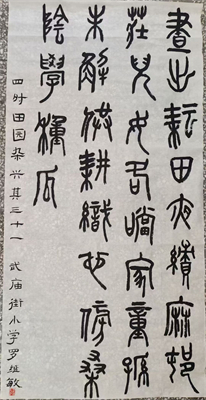 晝出耘田夜績麻邨
莊兒女各當家童孫
未解供耕織也傍桑
陰學種瓜
四时田园杂兴其三十一 武庙街小学罗祖敏